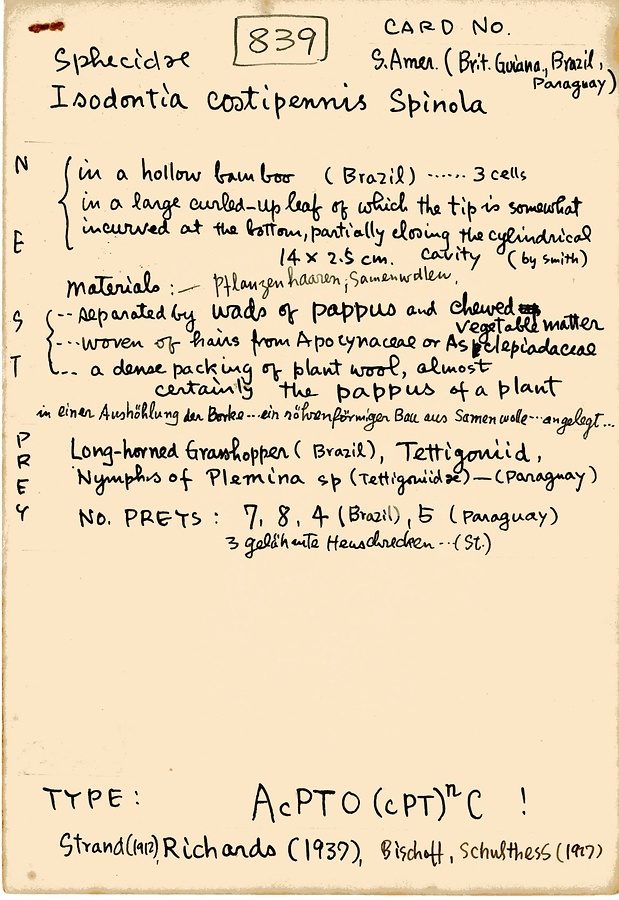 839
CARD NO.
Sphecidae
S. Amer. (Brit. Guiana, Brazil, Paraguay)
Isodontia costipennis Spinola
NEST
in a hollow bamboo (Brazil) ...... 3 cells
in a large curled-up leaf of which the tip is somewhat
incurved at the bottom, partially closing the cylindrical
14 x 2.5 cm. cavity (by Smith)
materials :— Pflanzenhaaren, Samenwollen,
-- separated by wads of pappus and chewed
vegetable matter
--- woven of hairs from Apocynaceae or Asclepiadaceae
-- a dense packing of plant wool, almost
certainly the pappus of a plant
in einer Aushöhlung der Borke --- ein röhrenförmiger Bau aus Samenwolle --- angelegt...
PREY
Long-horned Grasshopper (Brazil), Tettigoniid,
Nymphs of Plemina sp (Tettigoniidae) — (Paraguay)
NO. PREYS : 7, 8, 4 (Brazil), 5 (Paraguay)
3 gelähmte Heuschrecken --- (St.)
TYPE : AcPTO (cPT)ⁿC !
Strand (1912), Richards (1937), Bischoff, Schulthess (1927)